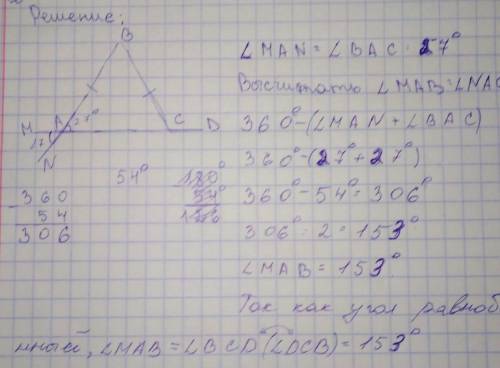 Решение:
B
A 27°
M
C
D
17°
N
54°
360
54
306
180°
54°
∠MAN = ∠BAC = 27°
Высчитать ∠MAB = ∠NAC
360° - (∠MAN + ∠BAC)
360° - (27° + 27°)
360° - 54° = 306°
306° : 2 = 153°
∠MAB = 153°
Так как угол равноб
нный, ∠MAB = ∠BCD (∠DCB) = 153°